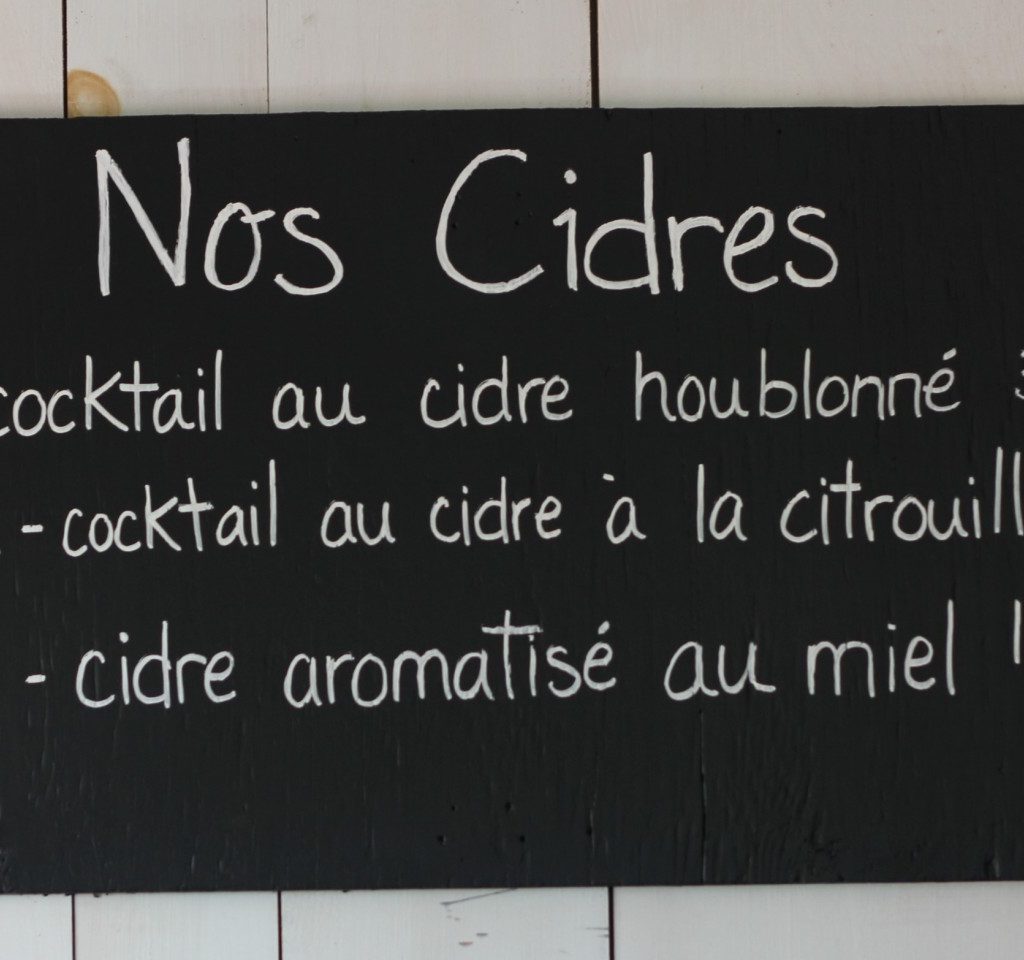 Nos Cidres
cocktail au cidre houblonné
- cocktail au cidre à la citrouill
- cidre aromatisé au miel